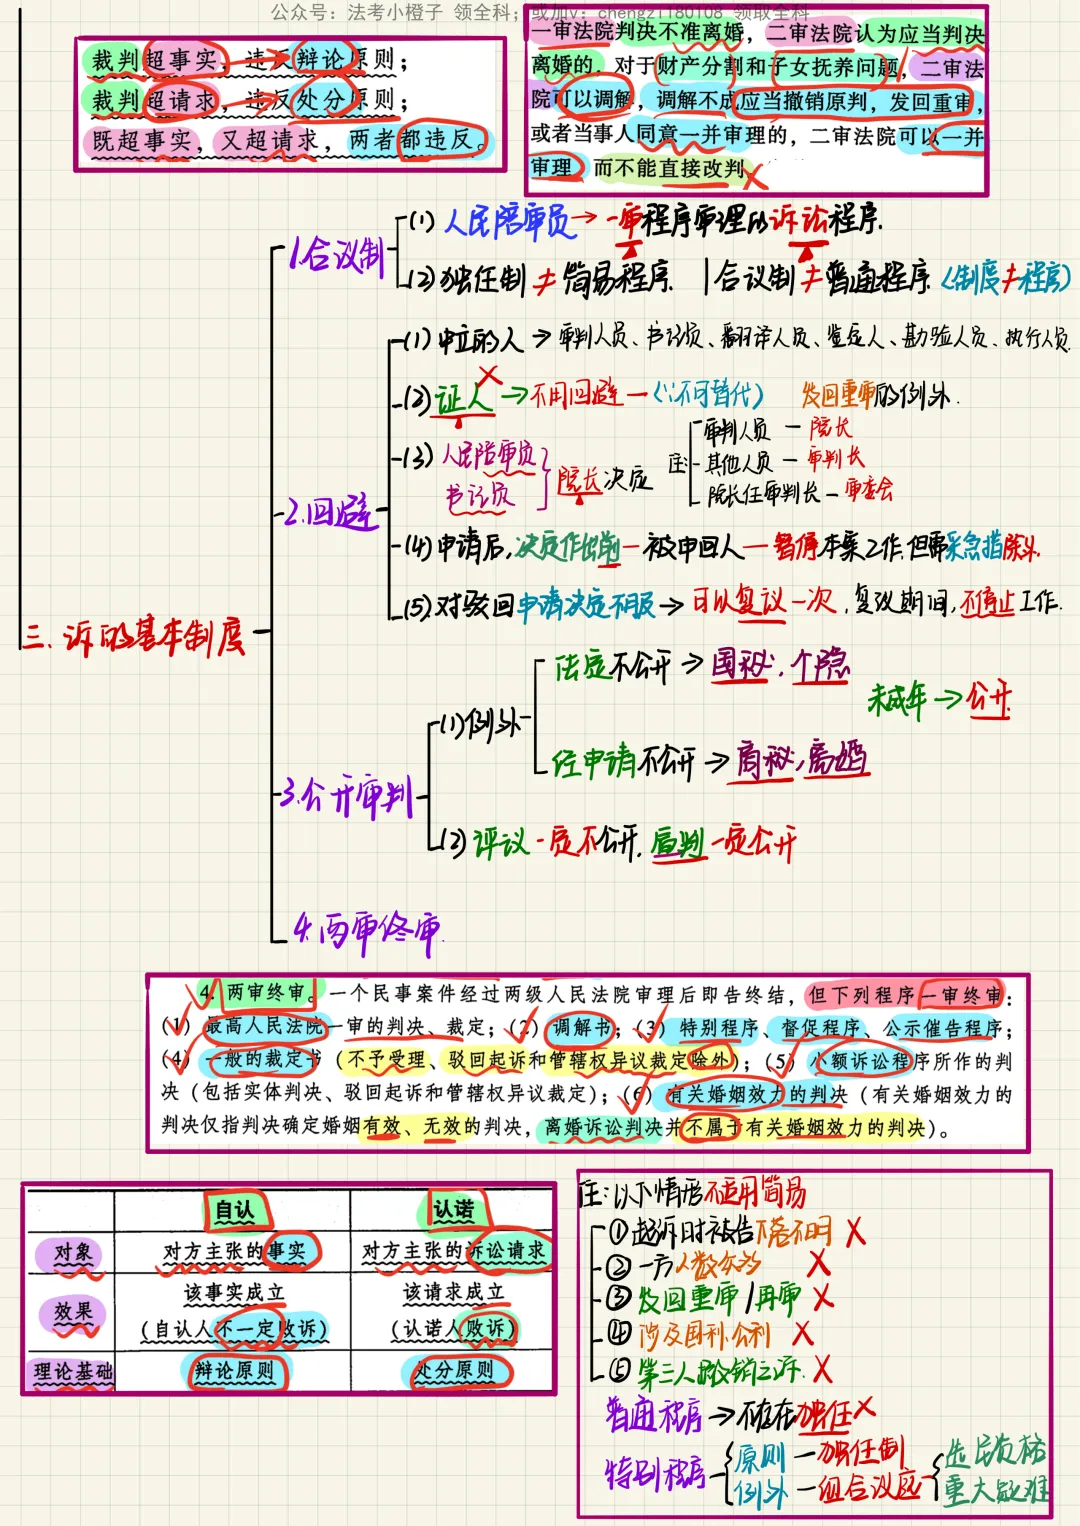 公众号：法考小橙子 领全科；或加v：chengzi180108 领取全科
裁判超事实，违反辩论原则；
裁判超请求，违反处分原则；
既超事实，又超请求，两者都违反。
一审法院判决不准离婚，二审法院认为应当判决
离婚的，对于财产分割和子女抚养问题，二审法
院可以调解，调解不成应当撤销原判，发回重审，
或者当事人同意一并审理的，二审法院可以一并
审理，而不能直接改判
三.诉的基本制度
1.合议制
(1)人民陪审员→一审程序审理的诉讼程序.
(2)独任制≠简易程序. |合议制≠普通程序.(制度≠程序)
2.回避
(1)中立的人→审判人员、书记员、翻译人员、鉴定人、勘验人员、执行人员.
(2)证人→不用回避—(∵不可替代) 发回重审的例外.
(3)人民陪审员
书记员
院长决定
注:
审判人员—院长
其他人员—审判长
院长任审判长—审委会
(4)申请后,决定作出前—被申回人—暂停本案工作.但需采急措除外.
(5)对驳回申请决定不服→可以复议一次,复议期间,不停止工作.
3.公开审判
(1)例外
法定不公开→国秘、个隐
未成年→公开.
经申请不公开→商秘,离婚
(2)评议一定不公开,宣判一定公开
4.两审终审.
4. 两审终审。一个民事案件经过两级人民法院审理后即告终结，但下列程序一审终审：
(1) 最高人民法院一审的判决、裁定；(2) 调解书；(3) 特别程序、督促程序、公示催告程序；
(4) 一般的裁定书（不予受理、驳回起诉和管辖权异议裁定除外）；(5) 小额诉讼程序所作的判
决（包括实体判决、驳回起诉和管辖权异议裁定）；(6) 有关婚姻效力的判决（有关婚姻效力的
判决仅指判决确定婚姻有效、无效的判决，离婚诉讼判决并不属于有关婚姻效力的判决）。
自认 认诺
对象 对方主张的事实 对方主张的诉讼请求
效果 该事实成立 该请求成立
(自认人不一定败诉) (认诺人败诉)
理论基础 辩论原则 处分原则
注:以下情形不适用简易
①起诉时被告下落不明 ×
②一方人数众多 ×
③发回重审/再审 ×
④涉及国利公利 ×
⑤第三人撤销之诉. ×
普通程序→不存在独任×
特别程序
原则—独任制
例外—组合议庭
选民资格
重大疑难